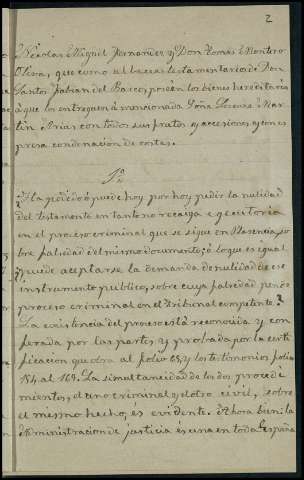 2
Nicolas Miguel Fernandez y Don Tomás Montero
Oliva, que como albaceas testamentarios de Don
Santos Fabian del Barco, poséan los bienes hereditarios
á que los entreguen á mencionada Doña Dolores Mar-
tin Arias con todos sus frutos y accesiones y con es
presa condenacion de costas.
1º
¿Ha podido ó puede hoy por hoy pedir la nulidad
del testamento en tanto no recaiga ejecutoria
en el proceso criminal que se sigue en Plasencia, so-
bre falsedad del mismo documento; ó lo que es igual
¿puede aceptarse la demanda de nulidad de ese
instrumento publico, sobre cuya falsedad pende
proceso criminal en el tribunal competente?
La existencia del proceso está reconocida y con
fesada por las partes y probada por la certi
ficacion que obra al folio 65, y los testimonios folios
154 al 169. La simultaneidad de los dos procedi
mientos, el uno criminal y el otro civil, sobre
el mismo hecho, és evidente. Ahora bien: la
Administracion de justicia és una en toda España